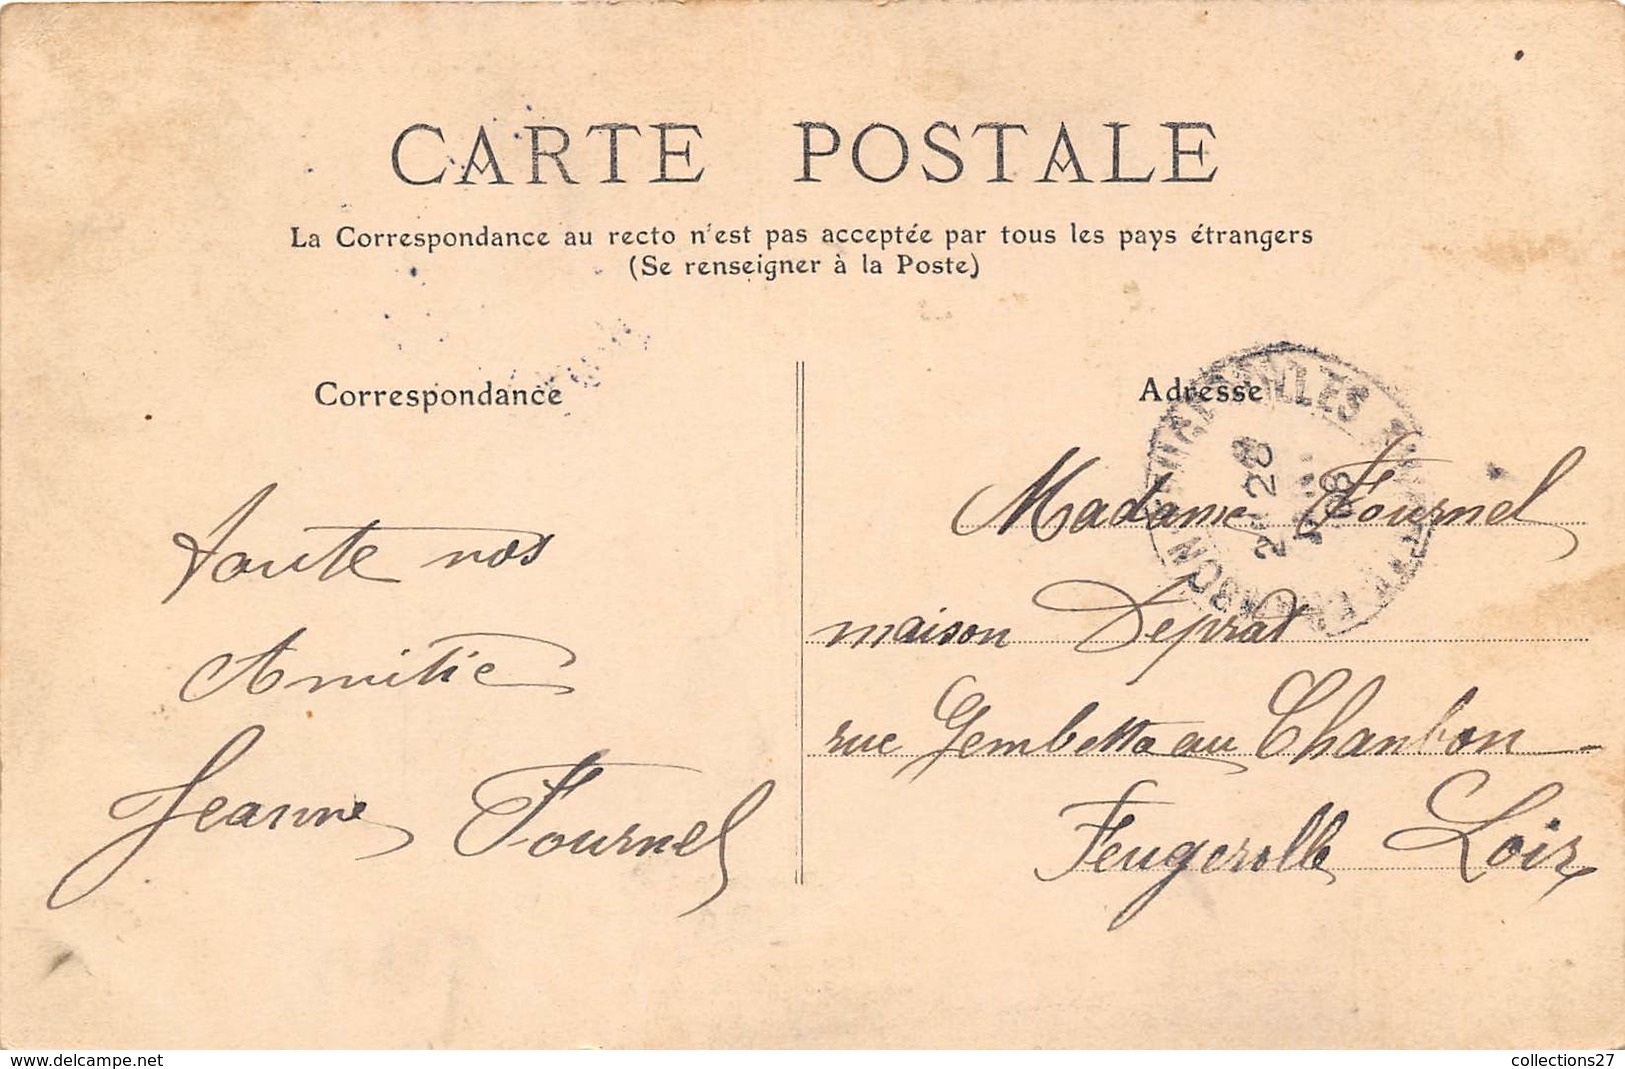 CARTE POSTALE
La Correspondance au recto n'est pas acceptée par tous les pays étrangers
(Se renseigner à la Poste)
Correspondance
toute nos
Amitie
Jeanne Fournel
Adresse
Madame Fournel
maison Deprat
rue Gembetta au Chanbon
Feugerolle Loire
28
08
www.delcampe.net
collections27